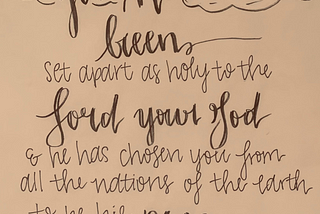 been
set apart as holy to the
Lord your God
& he has chosen you from
all the nations of the earth
to be his